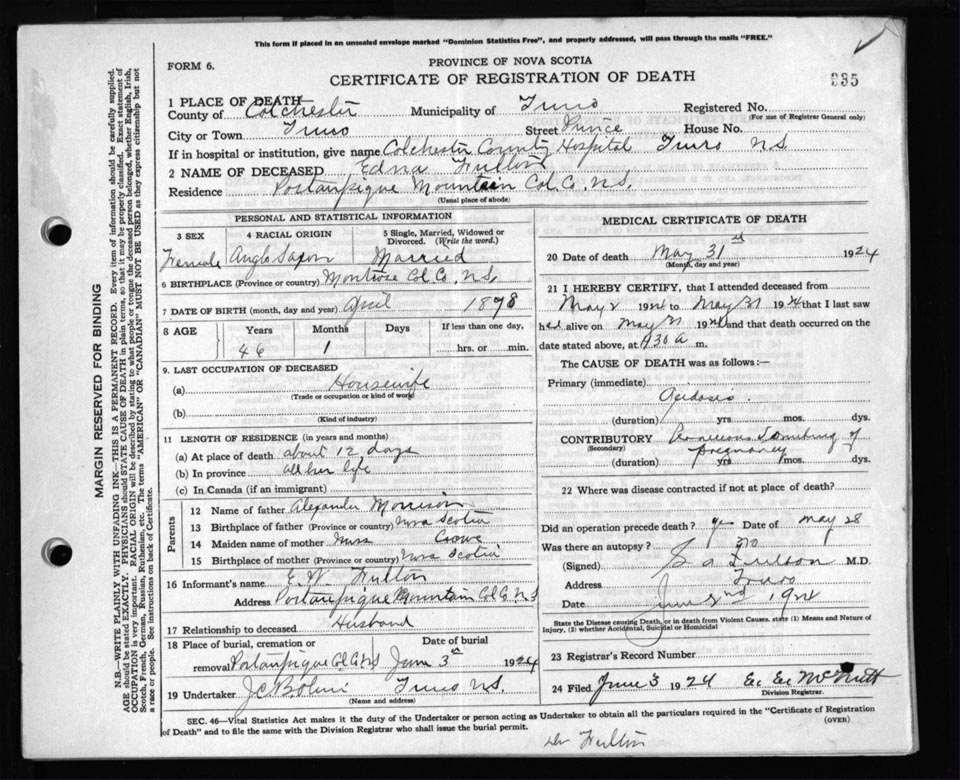 This form if placed in an unsealed envelope marked "Dominion Statistics Free", and properly addressed, will pass through the mails "FREE."
FORM 6.
PROVINCE OF NOVA SCOTIA
CERTIFICATE OF REGISTRATION OF DEATH
935
1 PLACE OF DEATH
County of Colchester Municipality of Truro Registered No.
(For use of Registrar General only)
City or Town Truro Street Prince House No.
If in hospital or institution, give name Colchester County Hospital Truro N.S.
2 NAME OF DECEASED Edna Fulton
Residence Portaupique Mountain Col. Co. N.S.
(Usual place of abode)
PERSONAL AND STATISTICAL INFORMATION
3 SEX 4 RACIAL ORIGIN 5 Single, Married, Widowed or Divorced. (Write the word.)
Female Anglo Saxon Married
6 BIRTHPLACE (Province or country) Montrose Col. Co. N.S.
7 DATE OF BIRTH (month, day and year) April 1878
8 AGE Years Months Days If less than one day,
46 1 hrs. or min.
9. LAST OCCUPATION OF DECEASED
(a) Housewife
(Trade or occupation or kind of work)
(b)
(Kind of industry)
11 LENGTH OF RESIDENCE (in years and months)
(a) At place of death about 12 days
(b) In province all her life
(c) In Canada (if an immigrant)
Parents
12 Name of father Alexander Morrison
13 Birthplace of father (Province or country) Nova Scotia
14 Maiden name of mother Miss Crowe
15 Birthplace of mother (Province or country) Nova Scotia
16 Informant's name E. W. Fulton
Address Portaupique Mountain Col. Co. N.S
17 Relationship to deceased Husband
18 Place of burial, cremation or Date of burial
removal Portaupique Col. Co. N.S June 3rd 1924
19 Undertaker J C Truro N.S.
(Name and address)
MEDICAL CERTIFICATE OF DEATH
20 Date of death May 31st 1924
(Month, day and year)
21 I HEREBY CERTIFY, that I attended deceased from
May 2 1924 to May 31 1924 that I last saw
her alive on May 31 1924 and that death occurred on the
date stated above, at 930 a m.
The CAUSE OF DEATH was as follows:—
Primary (immediate)
Acidosis.
(duration) yrs mos. dys.
CONTRIBUTORY Pernicious Vomiting of
(Secondary) pregnancy
(duration) yrs mos. dys.
22 Where was disease contracted if not at place of death?
Did an operation precede death? yes Date of May 28
Was there an autopsy? no
(Signed) Fulton M.D.
Address Truro
Date June 2nd 1924
State the Disease causing Death, or in death from Violent Causes, state (1) Means and Nature of
Injury, (2) whether Accidental, Suicidal or Homicidal
23 Registrar's Record Number
24 Filed June 3 1924 E. E. McNutt
Division Registrar.
SEC. 46—Vital Statistics Act makes it the duty of the Undertaker or person acting as Undertaker to obtain all the particulars required in the "Certificate of Registration
of Death" and to file the same with the Division Registrar who shall issue the burial permit.
(OVER)
Dr Fulton
MARGIN RESERVED FOR BINDING
N.B.—WRITE PLAINLY WITH UNFADING INK—THIS IS A PERMANENT RECORD. Every item of information should be carefully supplied.
AGE should be stated EXACTLY. PHYSICIANS should STATE CAUSE OF DEATH in plain terms, so that it may be properly classified. Exact statement of
OCCUPATION is very important. RACIAL ORIGIN will be described by stating to what people or tongue the deceased person belonged, whether English, Irish,
Scotch, French, German, Russian, Ruthenian, etc. The terms "AMERICAN" or "CANADIAN" MUST NOT BE USED as they express citizenship but not
a race or people. See instructions on back of Certificate.